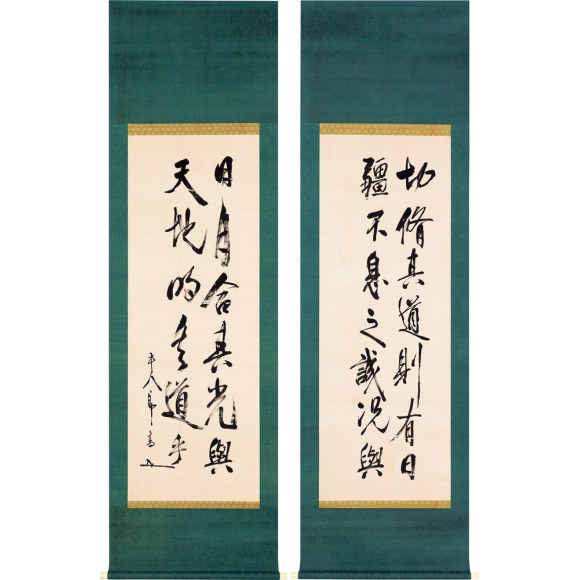 切脩其道則有日
疆不息之誠況與
日月合其光與
天地明其道乎